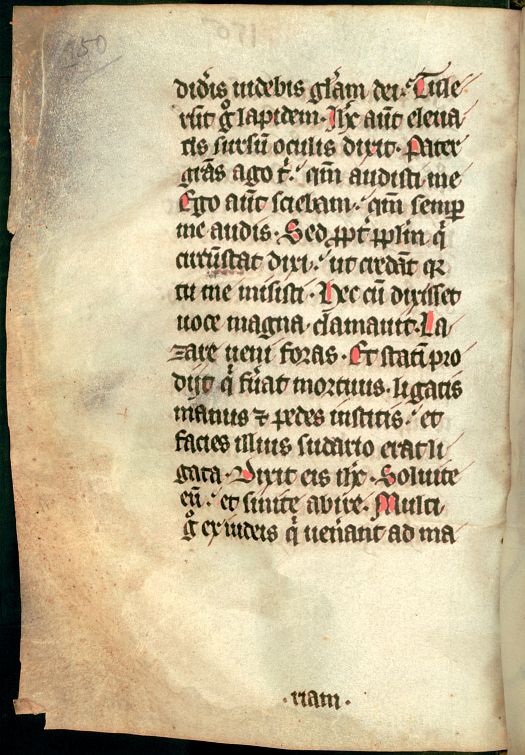 150
didis uidebis glam dei. Tule
rut g lapidem. Ihc aut eleua
tis sursu oculis dixit. Pater
gras ago t. qm audisti me
Ego aut sciebam. qm semp
me audis. Sed ppt pplm q
circustat dixi. ut credat qr
tu me misisti. Hec cu dixisset
uoce magna clamauit. La
zare ueni foras. Et stati pro
dijt q fuat mortuus. ligatis
manus ⁊ pedes institis. et
facies illius sudario erat li
gata. Dixit eis ihc. Soluite
eu. et sinite abire. Multi
g ex iudeis q uenant ad ma
. riam .